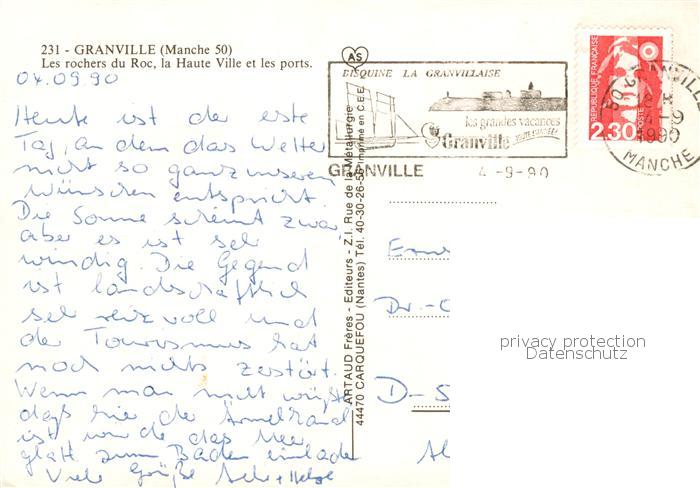 231 - GRANVILLE (Manche 50)
Les rochers du Roc, la Haute Ville et les ports.
04.09.90
Heute ist der erste
Tag, an dem das Wetter
nicht so ganz unseren
Wünschen entspricht.
Die Sonne scheint zwar,
aber es ist sehr
windig. Die Gegend
ist landschaftlich
sehr reizvoll und
der Tourismus hat
noch nichts zerstört.
Wenn man nicht wüßte
daß hier der Ärmelkanal
ist würde das Meer
glatt zum Baden einladen
Viele Grüße + Helge
ARTAUD Frères - Editeurs - Z.I. Rue de la Métallurgie
44470 CARQUEFOU (Nantes) Tél. 40-30-26-56 Imprimé en C.E.E.
AS
BISQUINE LA GRANVILLAISE
les grandes vacances
Granville
TOUTE L'ANNÉE
GRANVILLE 4-9-90
REPUBLIQUE FRANÇAISE
POSTES
2,30
50 GRANVILLE
4-9
1990
MANCHE
Dr.-
D-S
privacy protection
Datenschutz